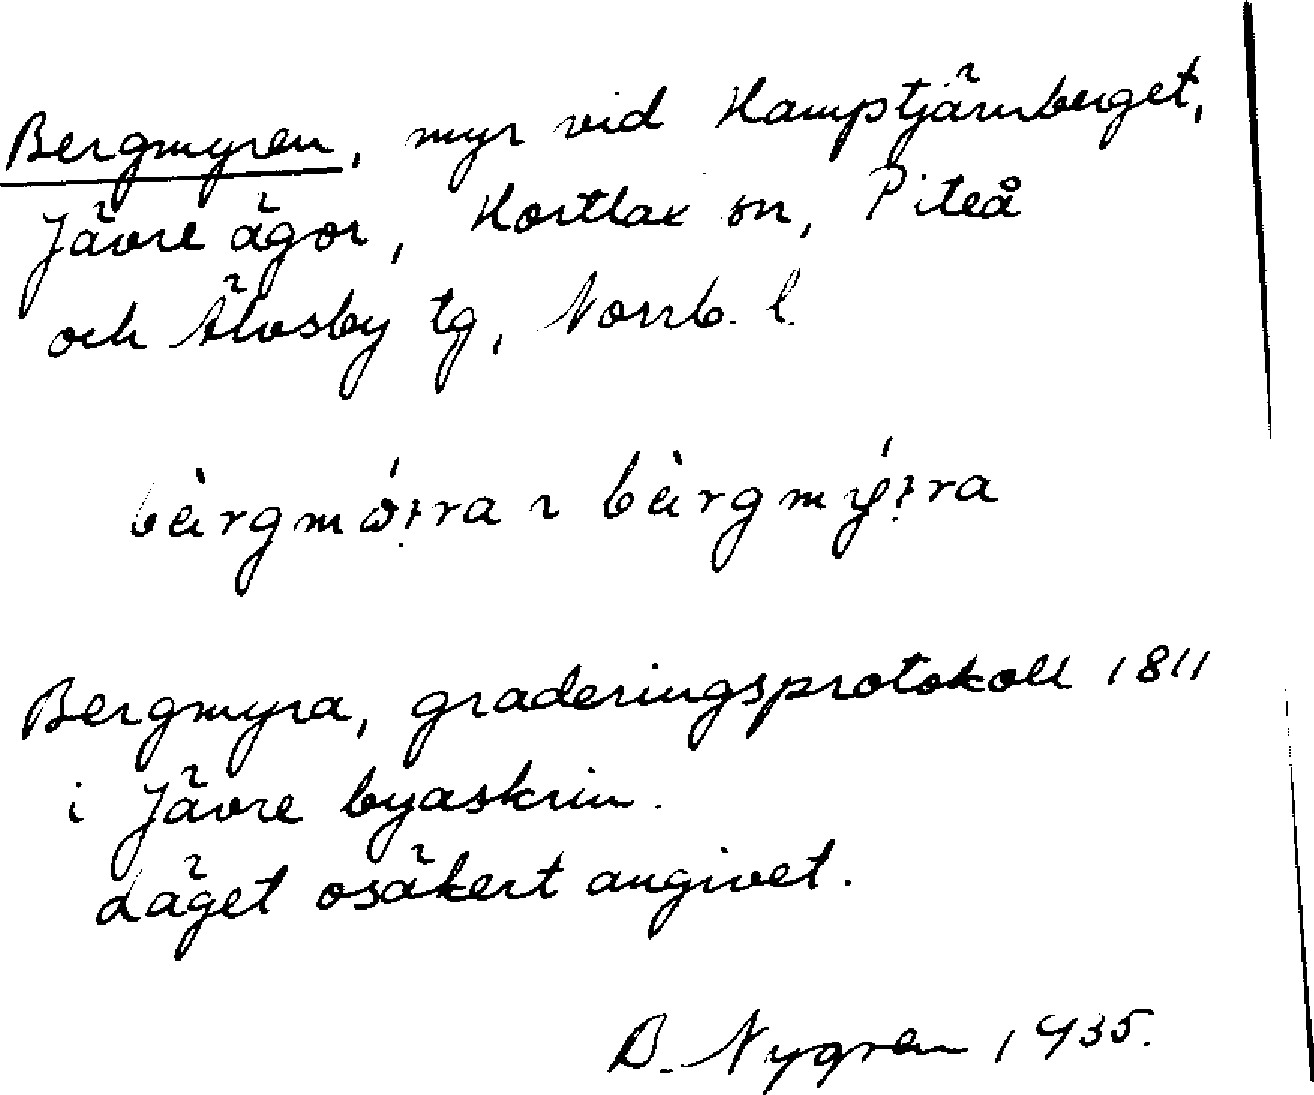 Bergmyren, myr vid Hamptjärnberget,
Jävre ägor, Hortlax sn, Piteå
och Älvsby tg, Norrb. l.
bärgmyra
Bergmyra, graderingsprotokoll 1811
i Jävre byaskrin.
Läget osäkert angivet.
B. Nygren 1935.